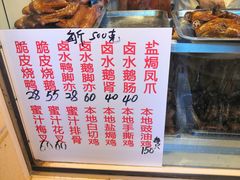 新 500克
脆皮烧鹅 28
脆皮烧鸭 55
卤水鸭脚亦 28
卤水鹅脚亦 60
卤水鹅肾 40
卤水鹅肠 40
盐焗凤爪
蜜汁梅叉
蜜汁花叉
蜜汁排骨
本地白切鸡
本地盐焗鸡
本地手撕鸡
本地豉油鸡
150